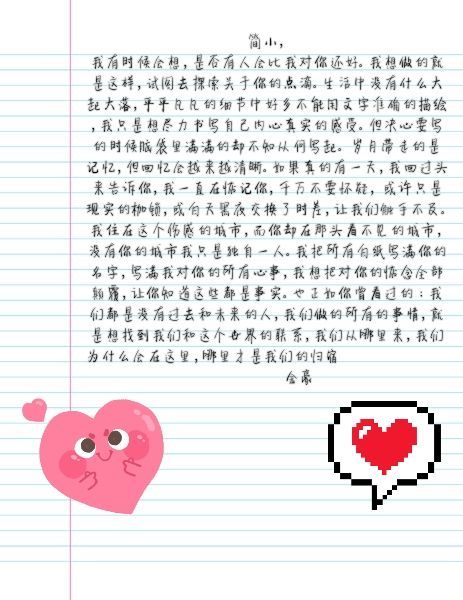 简小,
我有时候会想,是否有人会比我对你还好。我想做的就
是这样,试图去探索关于你的点滴。生活中没有什么大
起大落,平平凡凡的细节中好多不能用文字准确的描绘
,我只是想尽力书写自己内心真实的感受。但决心要写
的时候脑袋里满满的却不知从何写起。岁月带走的是
记忆,但回忆会越来越清晰。如果真的有一天,我回过头
来告诉你,我一直在惦记你,千万不要怀疑,或许只是
现实的枷锁,或白天黑夜交换了时差,让我们触手不及。
我住在这个伤感的城市,而你却在那头看不见的城市,
没有你的城市我只是独自一人。我把所有白纸写满你的
名字,写满我对你的所有心事,我想把对你的惦念全部
颠覆,让你知道这些都是事实。也正如你曾看过的:我
们都是没有过去和未来的人,我们做的所有的事情,就
是想找到我们和这个世界的联系,我们从哪里来,我们
为什么会在这里,哪里才是我们的归宿
金豪